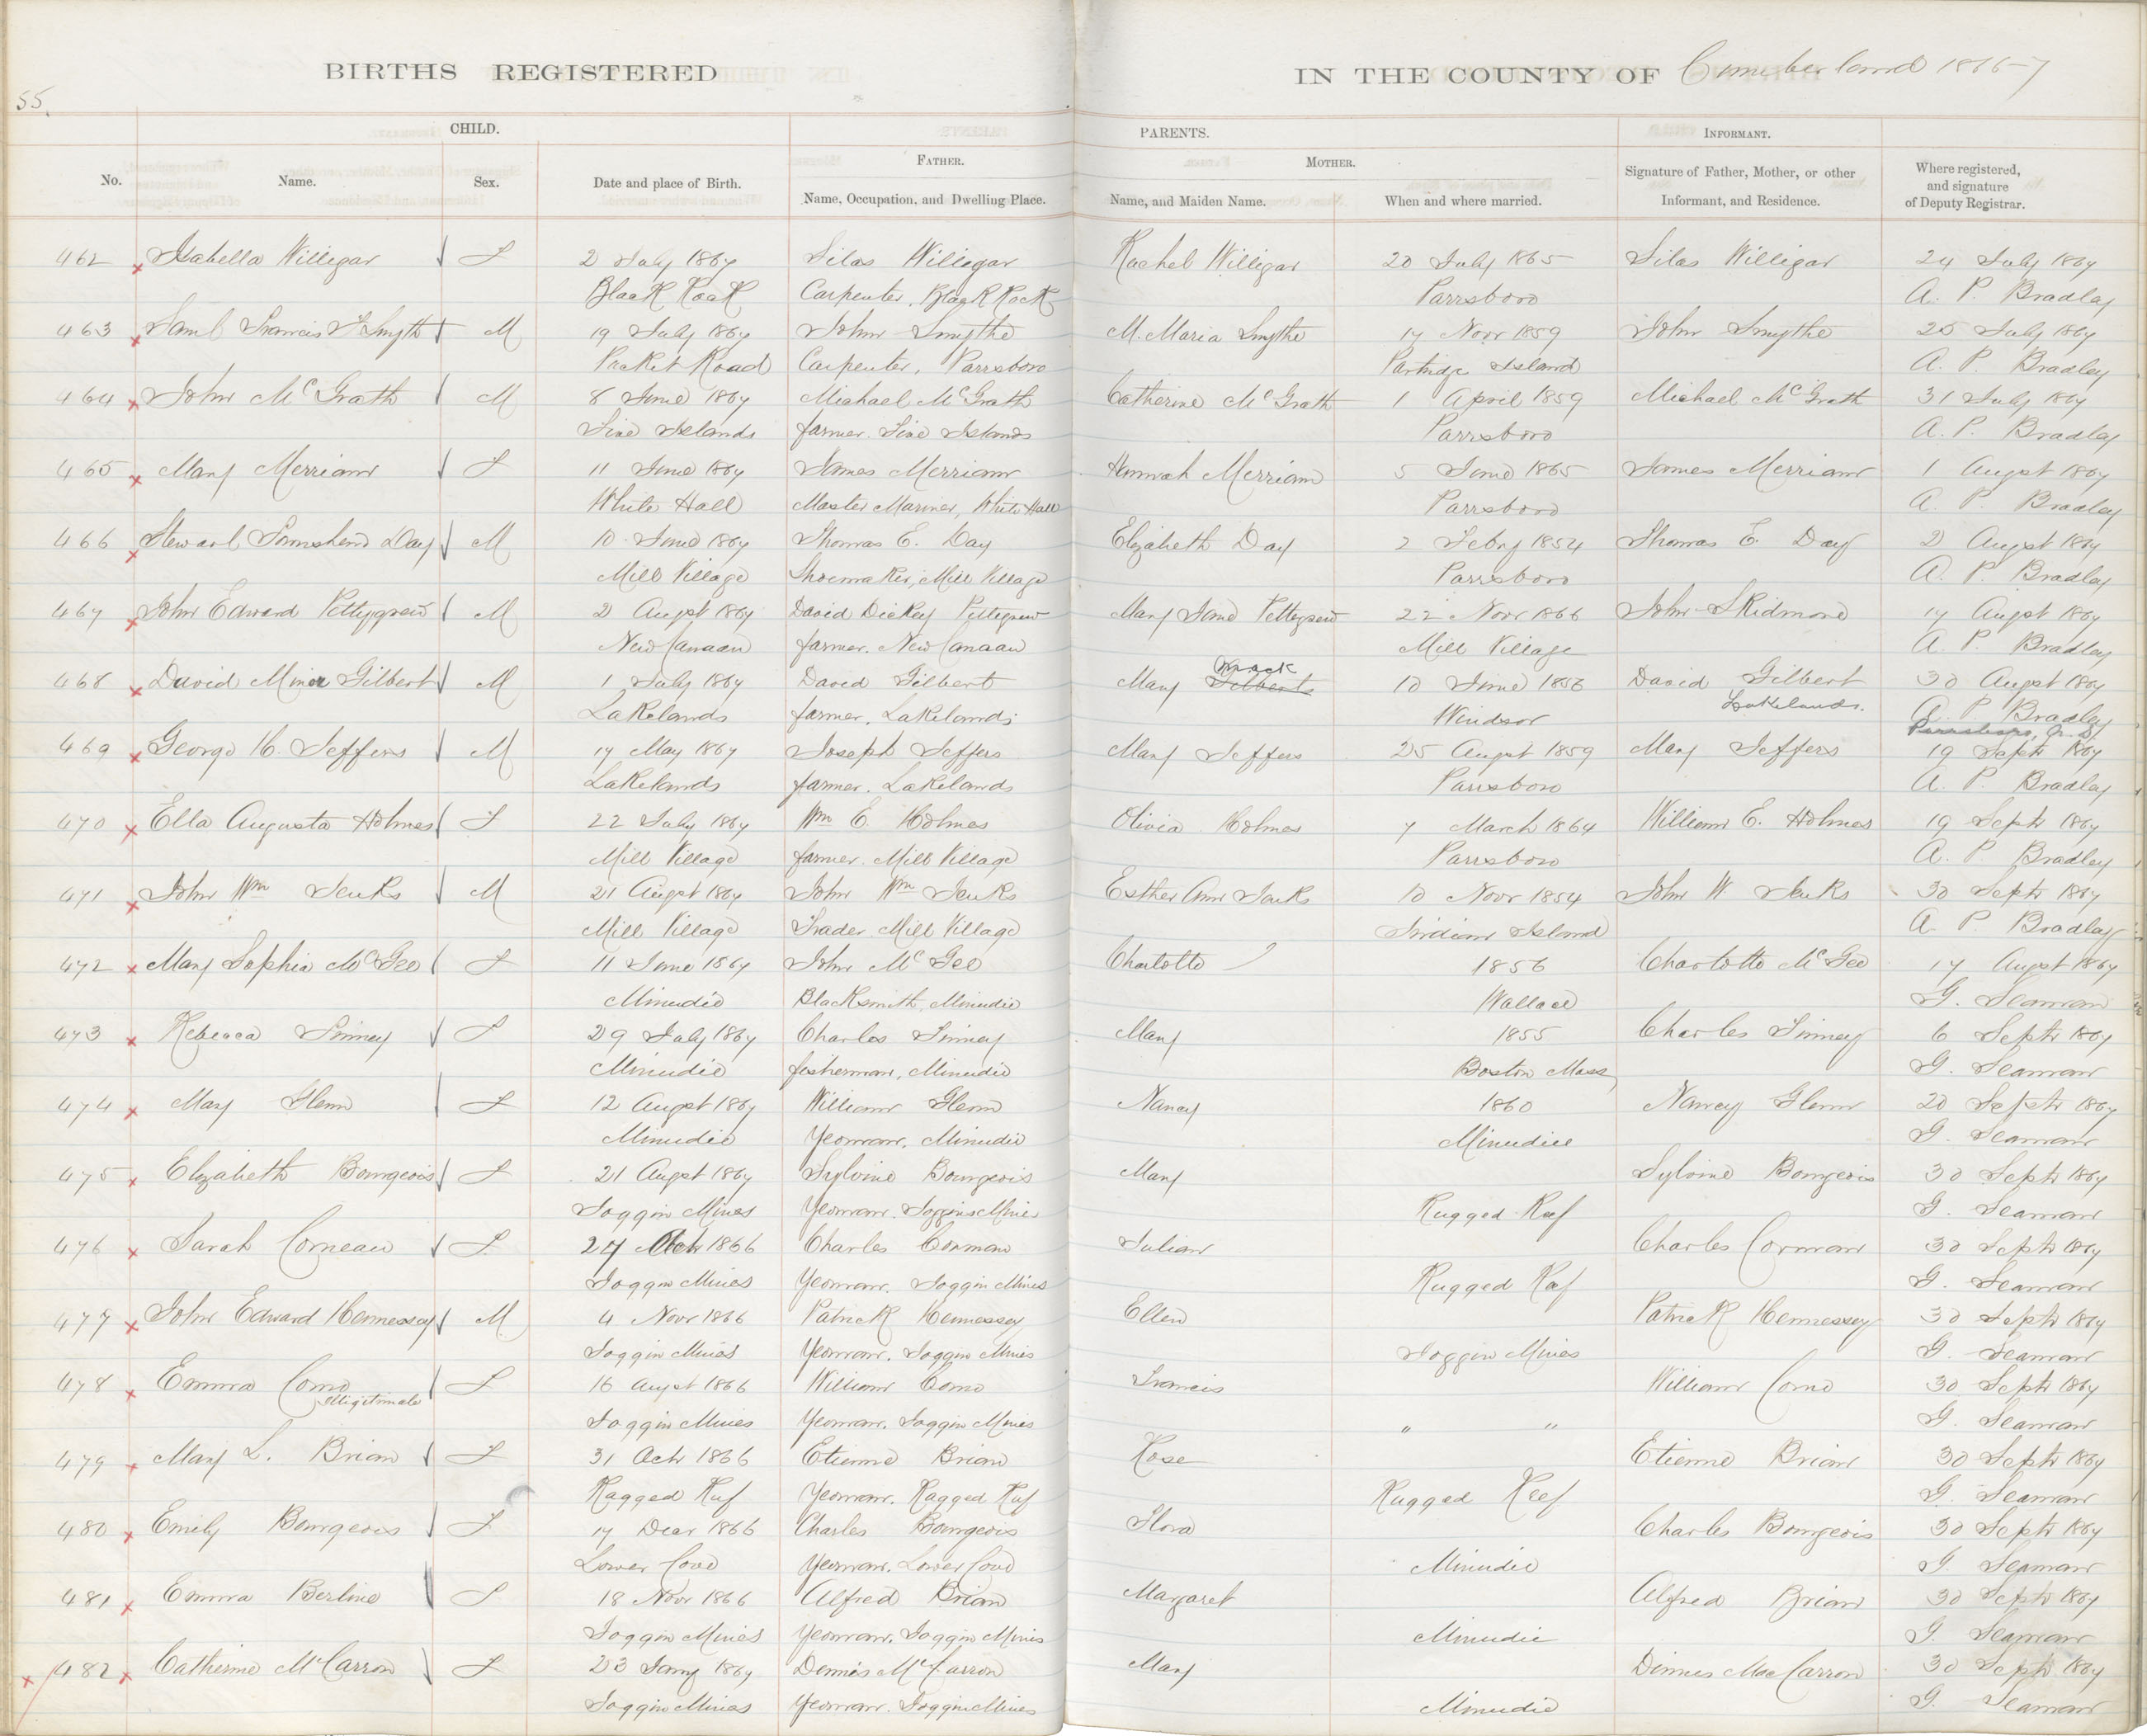 BIRTHS REGISTERED
IN THE COUNTY OF Cumberland 1866-7
55.
CHILD.
PARENTS.
INFORMANT.
FATHER.
MOTHER.
No.
Name.
Sex.
Date and place of Birth.
Name, Occupation, and Dwelling Place.
Name, and Maiden Name.
When and where married.
Signature of Father, Mother, or other
Informant, and Residence.
Where registered,
and signature
of Deputy Registrar.
462 Isabella Willigar F 2 July 1867 Silas Willigar Rachel Willigar 20 July 1865 Silas Willigar 24 July 1867
Black Rock Carpenter, Black Rock Parrsboro A. P. Bradley
463 Saml Francis Smyth M 19 July 1867 John Smythe M. Maria Smythe 17 Novr 1859 John Smythe 25 July 1867
Road Carpenter, Parrsboro Partridge Island A. P. Bradley
464 John McGrath M 8 June 1867 Michael McGrath Catherine McGrath 1 April 1859 Michael McGrath 31 July 1867
Five Islands farmer. Five Islands Parrsboro A. P. Bradley
465 Mary Merriam F 11 June 1867 James Merriam Hannah Merriam 5 June 1865 James Merriam 1 Augst 1867
White Hall Master Mariner, White Hall Parrsboro A. P. Bradley
466 Stewart Townshend Day M 10 June 1867 Thomas E. Day Elizabeth Day 2 Feby 1854 Thomas E. Day 2 Augst 1867
Mill Village Shoemaker, Mill Village Parrsboro A. P. Bradley
467 John Edward Pettygrew M 2 Augst 1867 David Dickey Pettegrew Mary Jane Pettegrew 22 Novr 1866 John Skidmore 17 Augst 1867
New Canaan farmer. New Canaan Mill Village A. P. Bradley
468 David Minor Gilbert M 1 July 1867 David Gilbert Mary Gilbert 10 June 1856 David Gilbert 30 Augst 1867
Lakelands farmer, Lakelands Windsor Lakelands. A. P. Bradley
Parrsboro, N.S.
469 George H. Jeffers M 17 May 1867 Joseph Jeffers Mary Jeffers 25 Augst 1859 Mary Jeffers 19 Septr 1867
Lakelands farmer. Lakelands Parrsboro A. P. Bradley
470 Ella Augusta Holmes F 22 July 1867 Wm E. Holmes Olivia Holmes 7 March 1864 William E. Holmes 19 Septr 1867
Mill Village farmer. Mill Village Parrsboro A. P. Bradley
471 John Wm Jenks M 21 Augst 1867 John Wm Jenks Esther Ann Jenks 10 Novr 1854 John W. Jenks 30 Septr 1867
Mill Village Trader Mill Village Indian Island A. P. Bradley
472 Mary Sophia McGee F 11 June 1867 John McGee Charlotte 1856 Charlotte McGee 17 Augst 1867
Minudie Blacksmith, Minudie Wallace G. Seaman
473 Rebecca Finney F 29 July 1867 Charles Finney Mary 1855 Charles Finney 6 Septr 1867
Minudie fisherman, Minudie Boston Mass, G. Seaman
474 Mary Glenn F 12 Augst 1867 William Glenn Nancy 1860 Nancy Glenn 20 Septr 1867
Minudie Yeoman, Minudie Minudie G. Seaman
475 Elizabeth Bourgeois F 21 Augst 1867 Sylvine Bourgeois Mary Sylvine Bourgeois 30 Septr 1867
Joggin Mines Yeoman. Joggins Mines Rugged Reef G. Seaman
476 Sarah Comeau F 27 Octr 1866 Charles Comeau Julian Charles Cormau 30 Septr 1867
Joggin Mines Yeoman. Joggin Mines Rugged Reef G. Seaman
477 John Edward Hennessey M 4 Novr 1866 Patrick Hennessey Ellen Patrick Hennessey 30 Septr 1867
Joggin Mines Yeoman. Joggin Mines Joggin Mines G. Seaman
478 Emma Como F 16 Augst 1866 William Como Francis William Como 30 Septr 1867
Illigitimate Joggin Mines Yeoman. Joggin Mines " " G. Seaman
479 Mary L. Brian F 31 Octr 1866 Etienne Brian Rose Etienne Brian 30 Septr 1867
Ragged Reef Yeoman. Ragged Reef Rugged Reef G. Seaman
480 Emily Bourgeois F 17 Decr 1866 Charles Bourgeois Flora Charles Bourgeois 30 Septr 1867
Lower Cove Yeoman. Lower Cove Minudie G. Seaman
481 Emma Berline F 18 Novr 1866 Alfred Brian Margaret Alfred Brian 30 Septr 1867
Joggin Mines Yeoman. Joggin Mines Minudie G. Seaman
482 Catherine McCarron F 23 Jany 1867 Dennis McCarron Mary Dinnes MacCarron 30 Septr 1867
Joggin Mines Yeoman. Joggin Mines Minudie G. Seaman